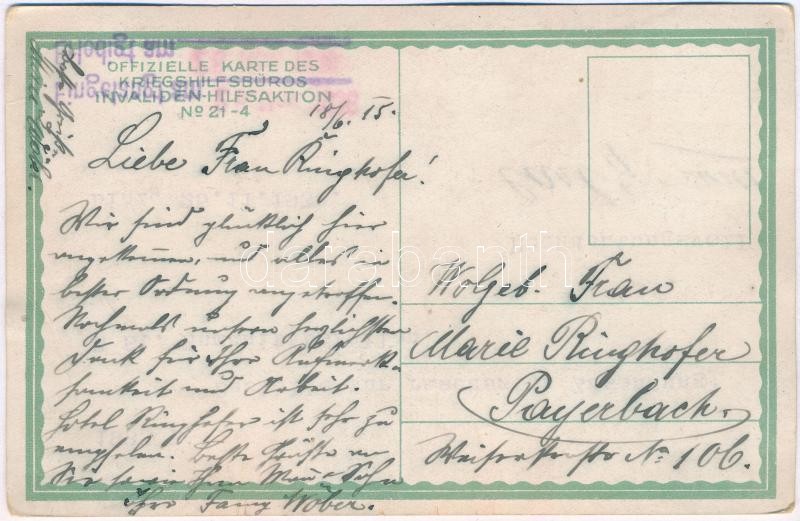 OFFIZIELLE KARTE DES
KRIEGSHILFSBÜROS
INVALIDEN-HILFSAKTION
No 21-4
18/6. 15.
Liebe Frau Ringhofer!
Wir sind glücklich hier
angekommen, und alles in
bester Ordnung angetroffen.
Nochmals unseren herzlichsten
Dank für Ihre Aufmerk-
samkeit und Arbeit.
Hotel Ringhofer ist sehr zu
empfehlen. Beste Grüße an
Sie sowie Ihren Mann Sohn
Ihre Fanny Wöber.
Wolgeb. Frau
Marie Ringhofer
Payerbach.
No 106.
darabanth